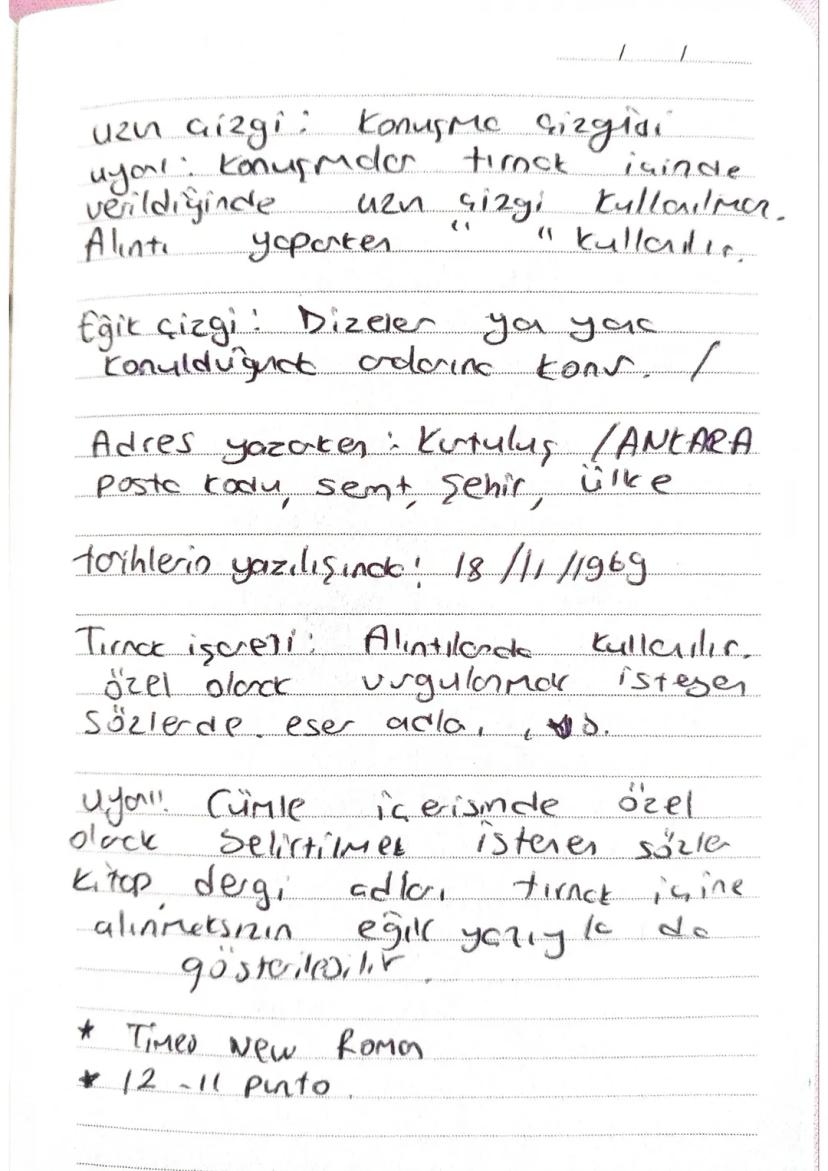 / /
uzun çizgi: Konuşma çizgisi
uyarı: Konuşmalar tırnak içinde
verildiğinde uzun çizgi kullanılmaz.
Alıntı yaparken " " kullanılır.
Eğik çizgi: Dizeler yan yana
konulduğunda aralarına konur. /
Adres yazarken: Kurtuluş /ANKARA
posta kodu, semt, şehir, ülke
tarihlerin yazılışında: 18/11/1969
Tırnak işareti: Alıntılarda kullanılır.
özel olarak vurgulanmak istenen
sözlerde. eser adla,
uyarı! Cümle içerisinde özel
olarak belirtilmek istenen sözler
kitap, dergi adları tırnak içine
alınmaksızın eğik yazıyla da
gösterilebilir.
* Times New Roman
* 12 - 11 punto.